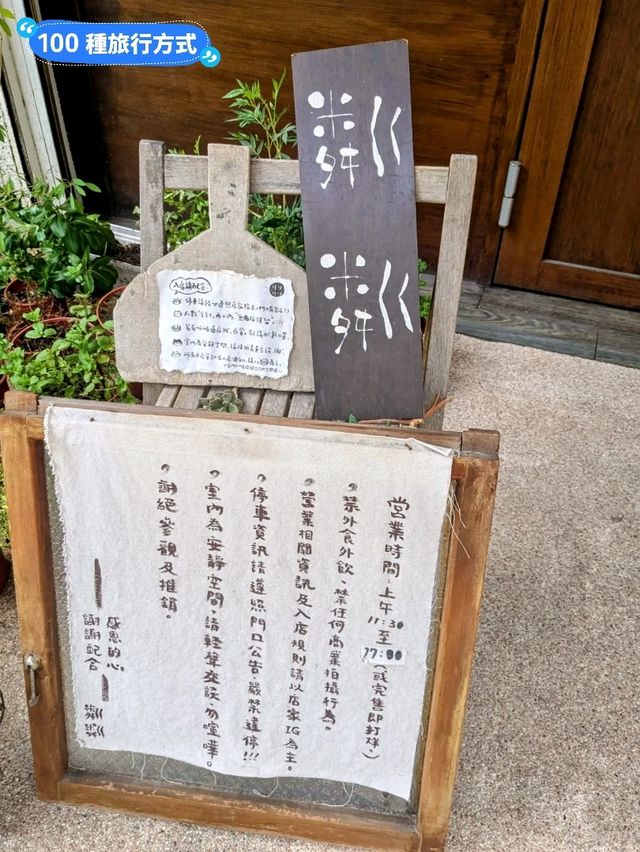 100 種旅行方式
粼
粼
入店請配合
營業時間:上午11:30至17:00(或完售即打烊。)
禁外食外飲、禁任何商業拍攝行為。
營業相關資訊及入店規則請以店家IG為主。
停車資訊請遵照門口公告,嚴禁違停!!!
室內為安靜空間,請輕聲交談,勿喧嘩。
謝絕參觀及推銷。
感恩的心
謝謝配合
粼粼